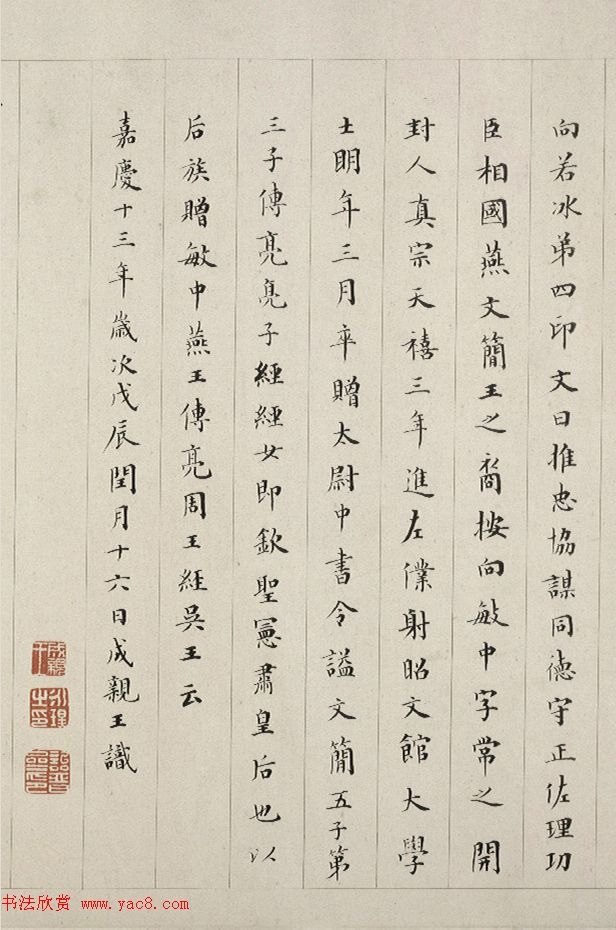 向若冰弟四印文曰推忠協謀同德守正佐理功
臣相國燕文簡王之裔按向敏中字常之開
封人真宗天禧三年進左僕射昭文館大學
士明年三月卒贈太尉中書令謚文簡五子第
三子傳亮亮子經經女即欽聖憲肅皇后也以
后族贈敏中燕王傳亮周王經吳王云
嘉慶十三年歲次戊辰閏月十六日成親王識
成親王
永瑆之印
詒晉齋印
书法欣赏 www.yac8.com